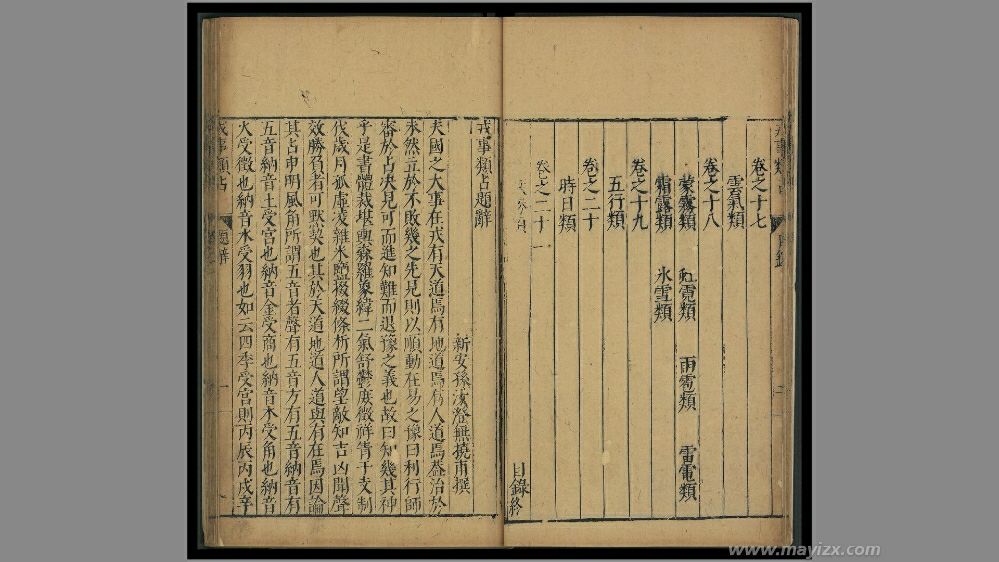 卷之十七
雲氣類
卷之十八
蒙霧類 虹霓類 雨雹類 雷電類
霜露類 氷雪類
卷之十九
五行類
卷之二十
時日類
卷之二十一
目錄終
戎事類占題辭
新安孫 澄無撓甫撰
夫國之大事在戎有天道焉有地道焉有人道焉益治於
未然立於不敗幾之先見則以順動在易之豫曰利行師
審於占决見可而進知難而退豫之義也故曰知幾其神
乎是書體裁堪輿森羅象緯二氣舒鬱庶徵祥眚干支制
伐歲月孤虛凌雜米鹽掇綴條析所謂望敵知吉凶聞聲
效勝負者可默契也其於天道地道人道與有在焉因論
其占申明風角所謂五音者聲有五音方有五音納音有
五音納音土受宮也納音金受商也納音木受角也納音
火受徵也納音水受羽也如云四季受宮則丙辰丙戌辛
戎事類占
題辭
一
www.mayizx.com